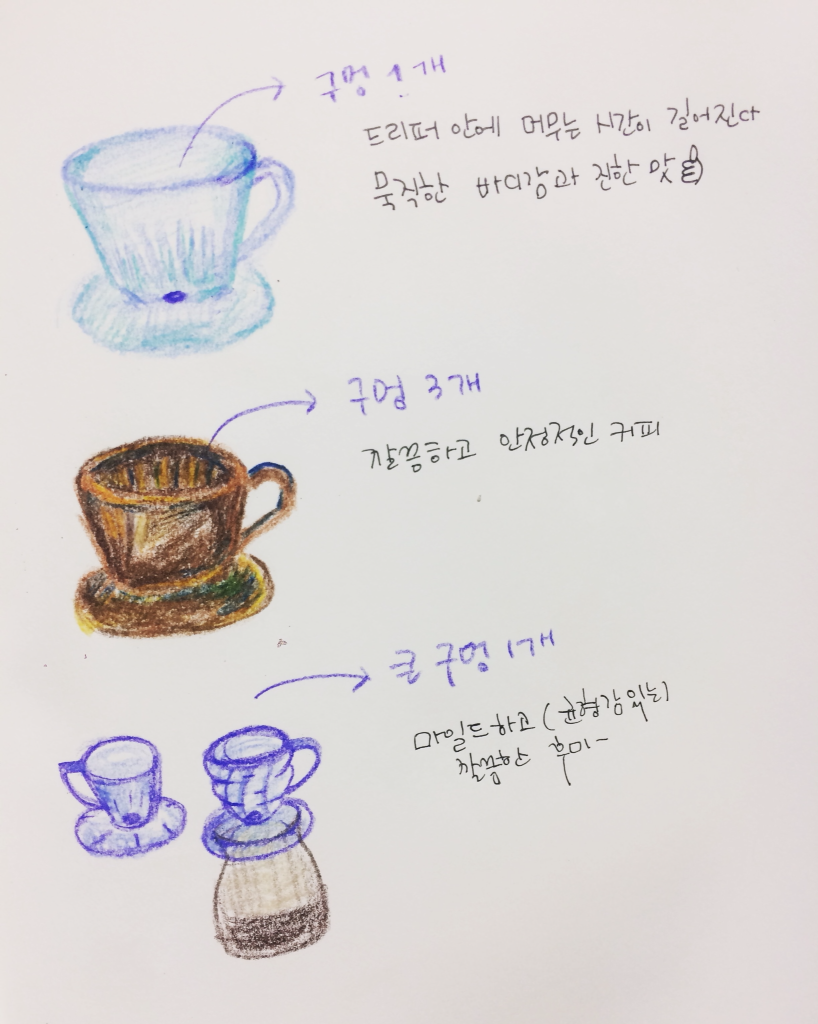 구멍 1개
드리퍼 안에 머무는 시간이 길어진다
묵직한 바디감과 진한 맛
구멍 3개
깔끔하고 안정적인 커피
큰 구멍 1개
마일드하고 (균형감있는)
깔끔한 후미~